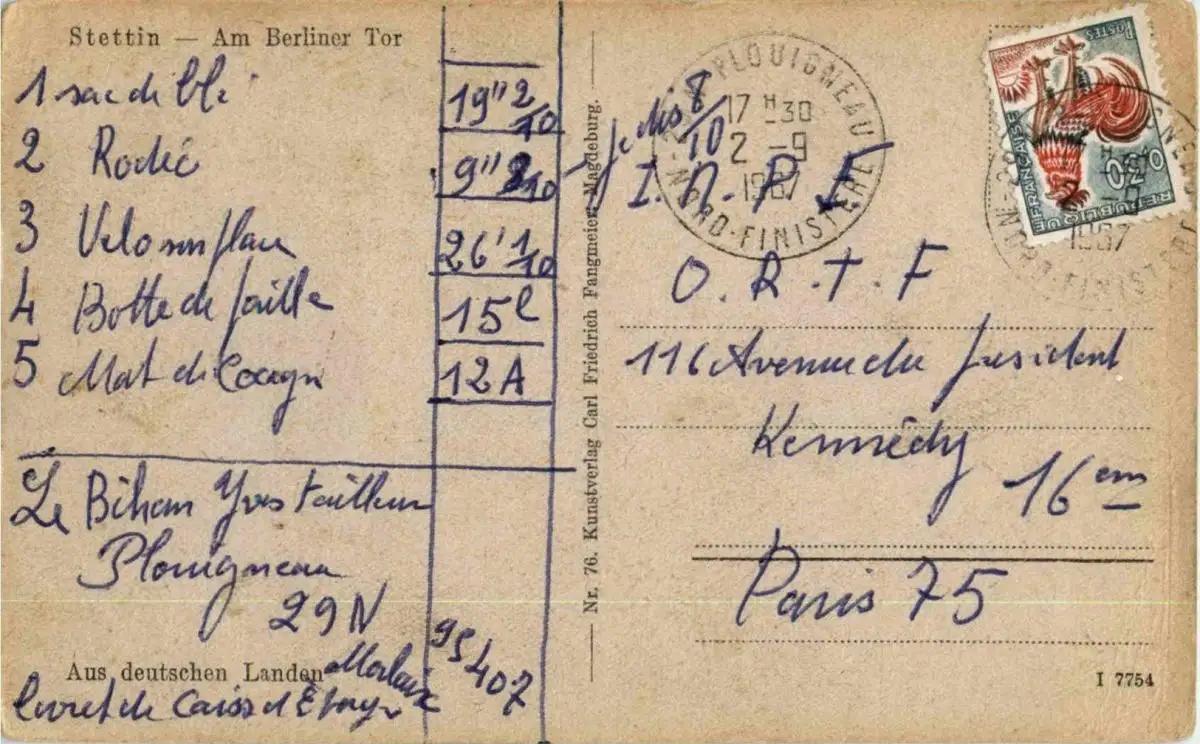 Stettin — Am Berliner Tor
1 sac de blé 19" 2/10
2 Rodéo 9" 8/10 — je dis 8/10
3 Velo sur flan 26' 1/10
4 Botte de paille 15 l
5 Mat de Cocagn 12 A
Le Bihan Yves tailleur
Plouigneau
29 N
Aus deutschen Landen Morlaix 95407
livret de Caiss d'Epargn
Nr. 76. Kunstverlag Carl Friedrich Fangmeier, Magdeburg.
PLOUIGNEAU
17 H 30
2 - 9
1967
NORD-FINISTERE
POSTES
0,30
REPUBLIQUE FRANÇAISE
1967
I. N. P E
O. R. T. F
116 Avenue du president
Kennédy
16 em
Paris 75
I 7754